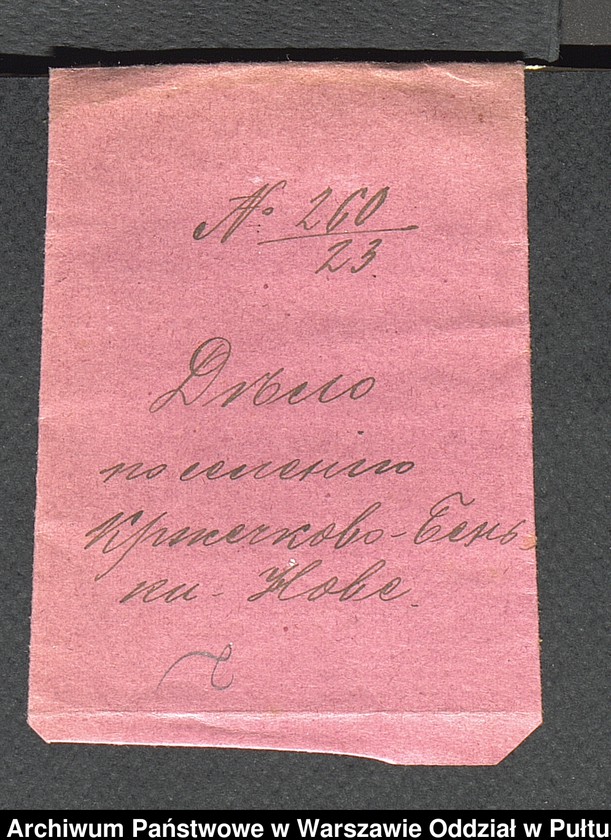 № 260
23
Дѣло
по селенію
Кржечково-Бень-
ки-Нове.
Archiwum Państwowe w Warszawie Oddział w Pułtu